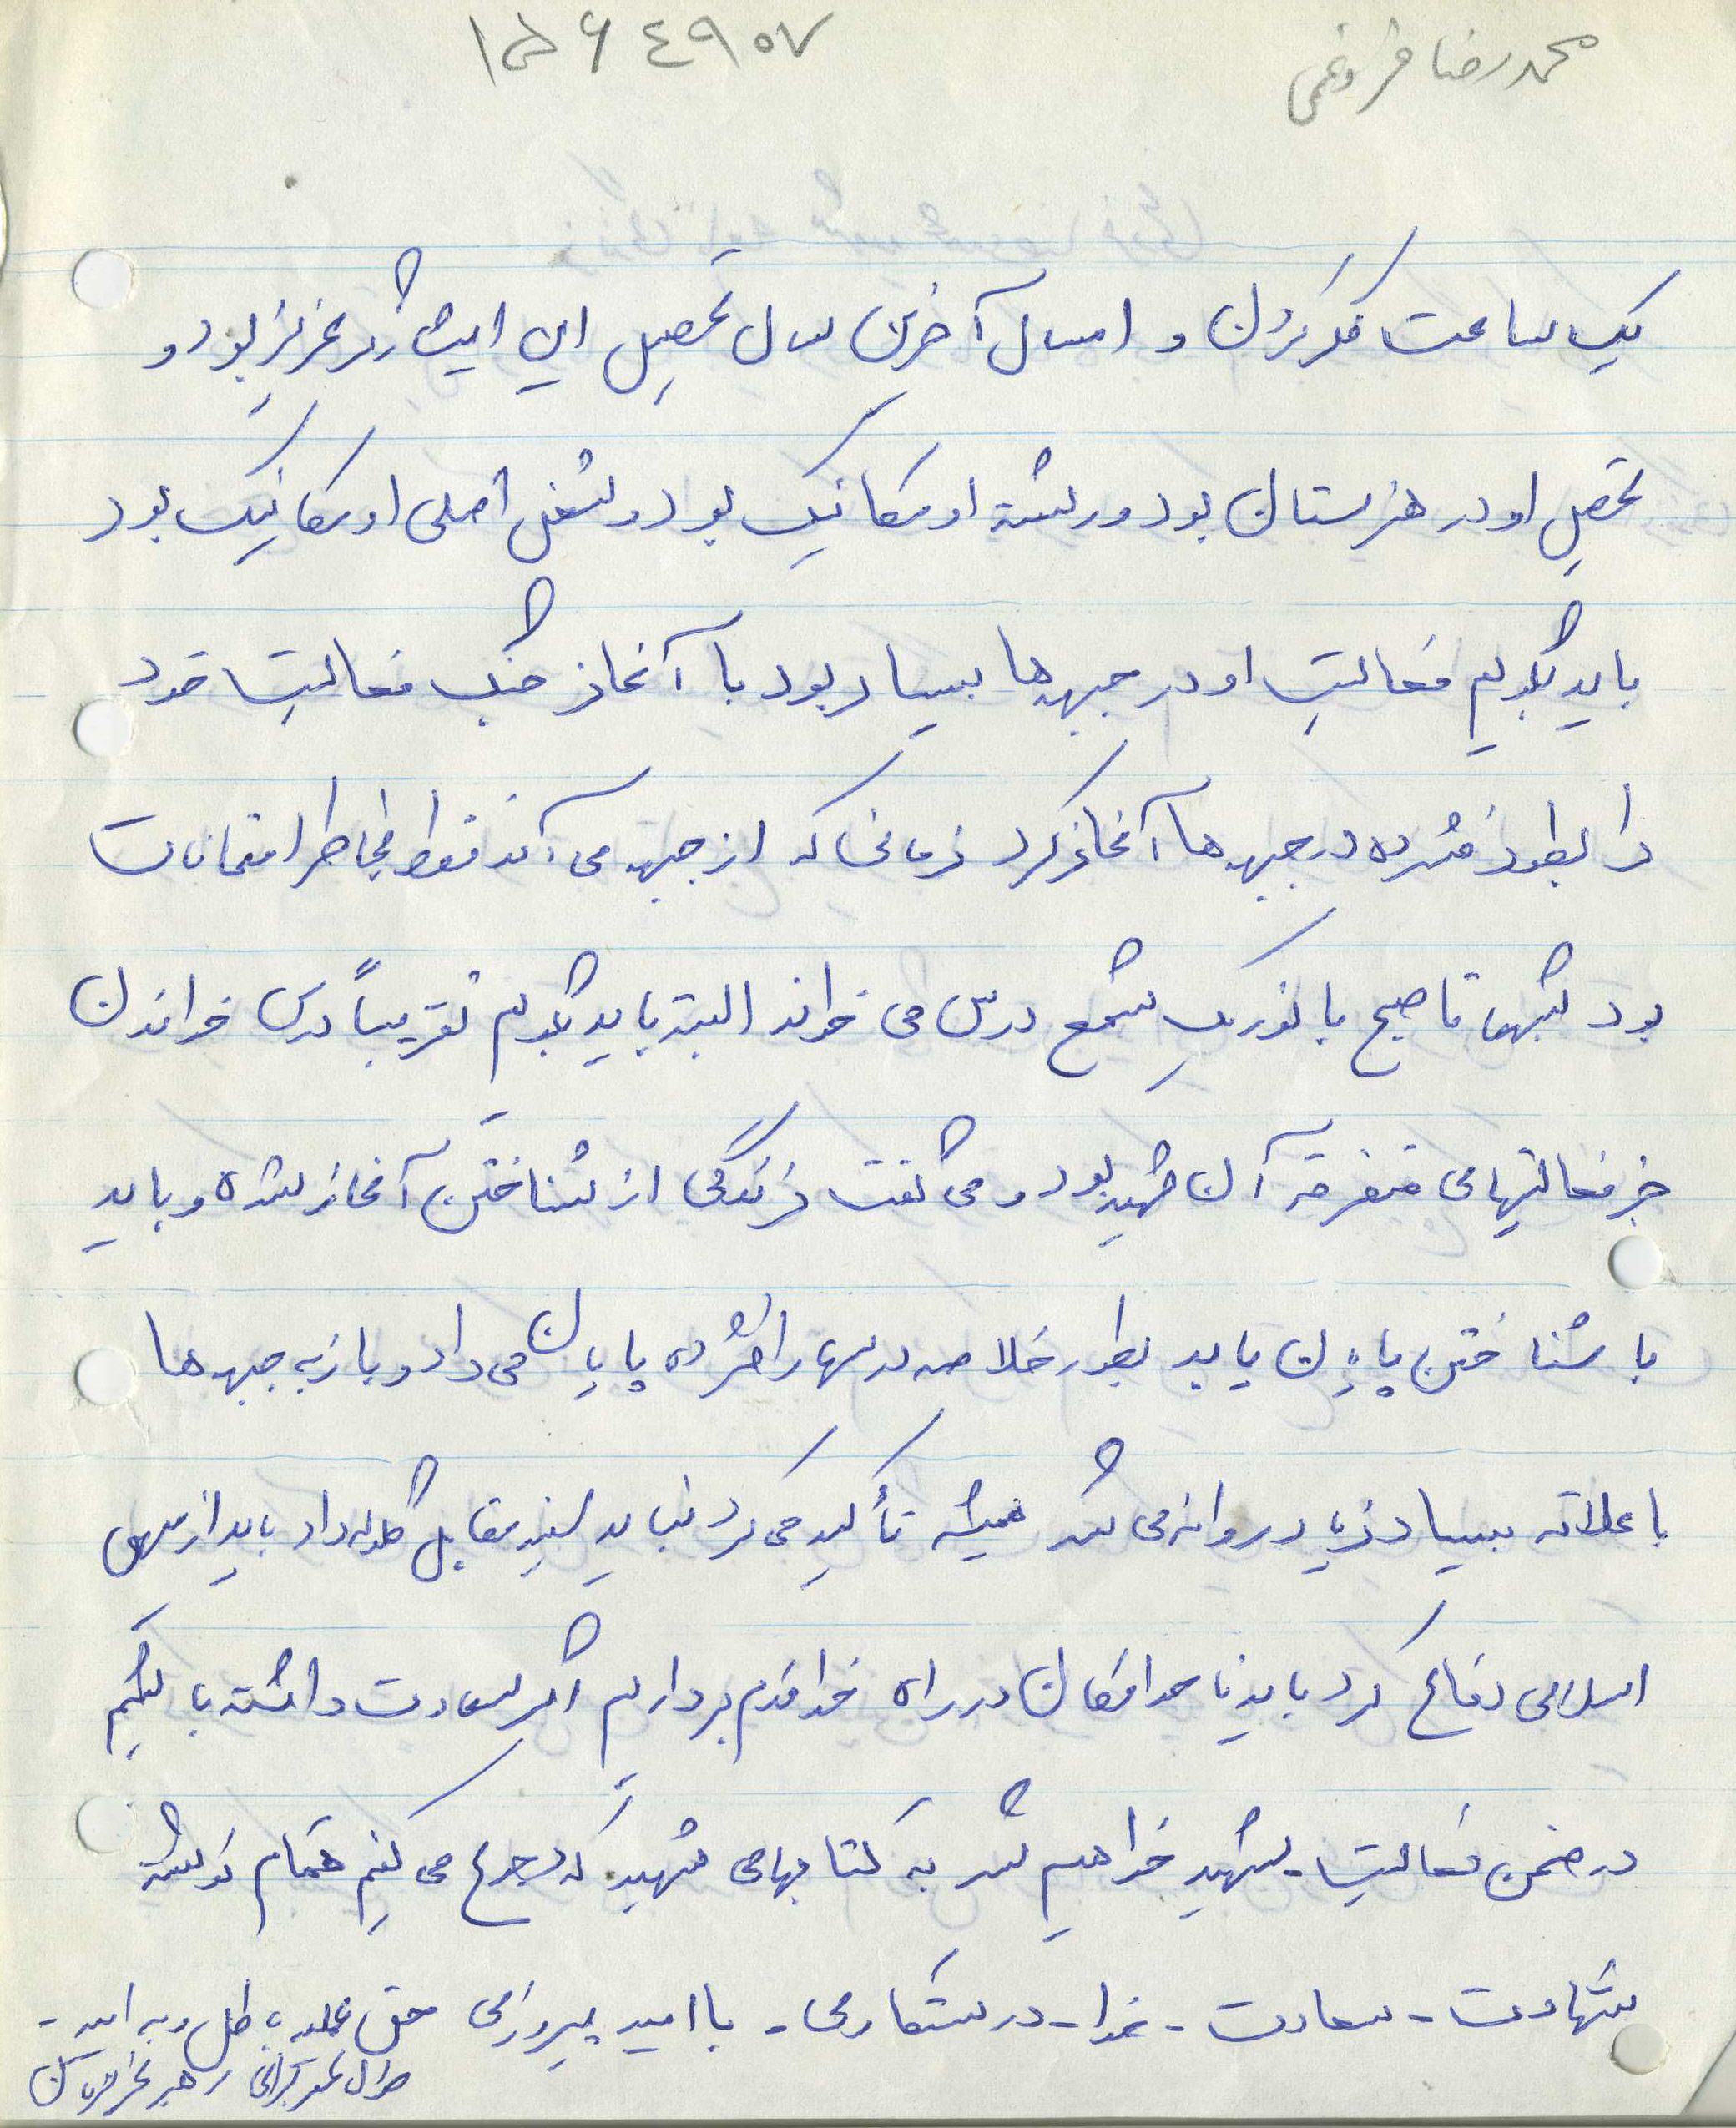 محمدرضا فروغی
۱۵۶۴۹۰۷
یک ساعت فکر کردن و امسال آخرین سال تحصیل این ایثارگر عزیز بود و
تحصیل او در هنرستان بود و رشته او مکانیک بود و شغل اصلی او مکانیک بود
باید بگویم فعالیت او در جبهه ها بسیار بود با آغاز جنگ فعالیت خود
را بطور فشرده در جبهه ها آغاز کرد زمانی که از جبهه می آمد فقط بخاطر امتحانات
بود شبها تا صبح با نور یک شمع درس می خواند البته باید بگویم تقریباً درس خواندن
جز فعالیتهای متفرقه آن شهید بود و می گفت زندگی از شناختن آغاز شده و باید
با شناختن پایان یابد بطور خلاصه درسها را فشرده پایان می داد و باز به جبهه ها
با علاقه بسیار زیاد روانه می شد همیشه تأکید می کرد نباید سینه مقابل گلوله داد باید از میهن
اسلامی دفاع کرد باید تا حد امکان در راه خدا قدم برداریم اگر سعادت داشته باشیم
در ضمن فعالیت شهید خواهیم شد به کتابهای شهید که رجوع می کنیم تمام نوشته
شهادت - سعادت - خدا - درستکاری - با امید پیروزی حق علیه باطل و به امید
طول عمر برای رهبر عزیزمان